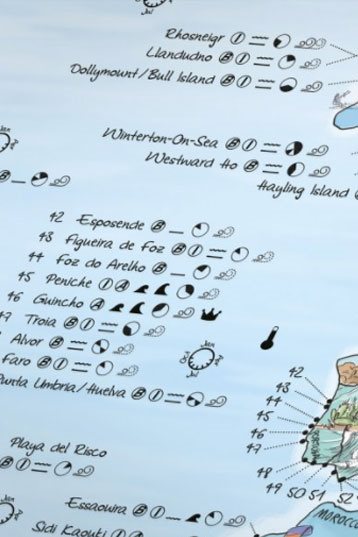 Rhosneigr Ⓘ
Llandudno Ⓑ Ⓘ
Dollymount/Bull Island Ⓑ Ⓘ
Jan
Winterton-On-Sea Ⓑ Ⓘ
Westward Ho Ⓑ Ⓘ
Hayling Island
Ⓑ
42 Esposende Ⓑ
43 Figueira de Foz Ⓑ Ⓘ
44 Foz do Arelho Ⓑ
45 Peniche Ⓘ Ⓐ
46 Guincho Ⓐ
47 Troia Ⓑ Ⓘ
Alvor Ⓑ
Faro Ⓑ Ⓘ
Punta Umbria/Huelva Ⓑ Ⓘ
Jan
Jul
42
43
44
45
46
47
48
49 50 51 52
Playa del Risco
Ⓑ Ⓘ
Essaouira Ⓑ Ⓘ
Sidi Kaouki Ⓘ
MOROCCO